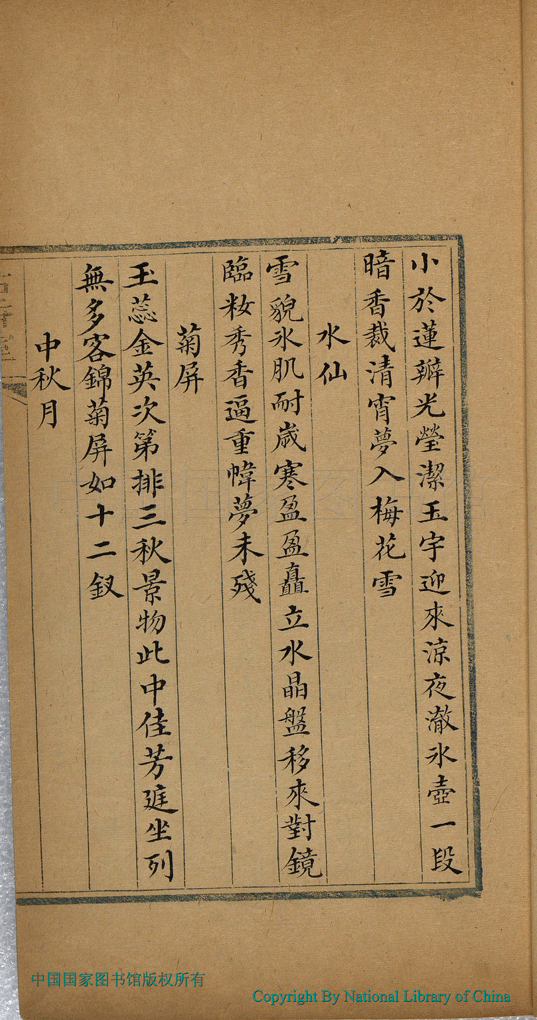 小於蓮瓣光瑩潔玉宇迎來涼夜澈氷壺一段
暗香裁清宵夢入梅花雪
水仙
雪貌氷肌耐歲寒盈盈矗立水晶盤移來對鏡
臨妝秀香逼重幃夢未殘
菊屏
玉蕊金英次第排三秋景物此中佳芳庭坐列
無多客錦菊屏如十二釵
中秋月
中国国家图书馆版权所有
Copyright By National Library of China